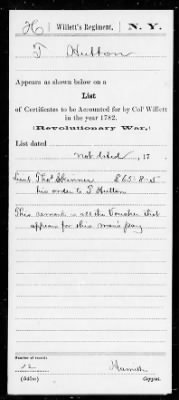 H | Willett's Regiment. | N. Y.
T Hutton
Appears as shown below on a
List
of Certificates to be Accounted for by Col' Willett
in the year 1782.
(Revolutionary War.)
List dated
not dated, 17
Lieut Thos Skinner £65-8-5
his order to T Hutton
This remark is all the Voucher that
appears for this man's pay
Number of records:
12
Copyist.